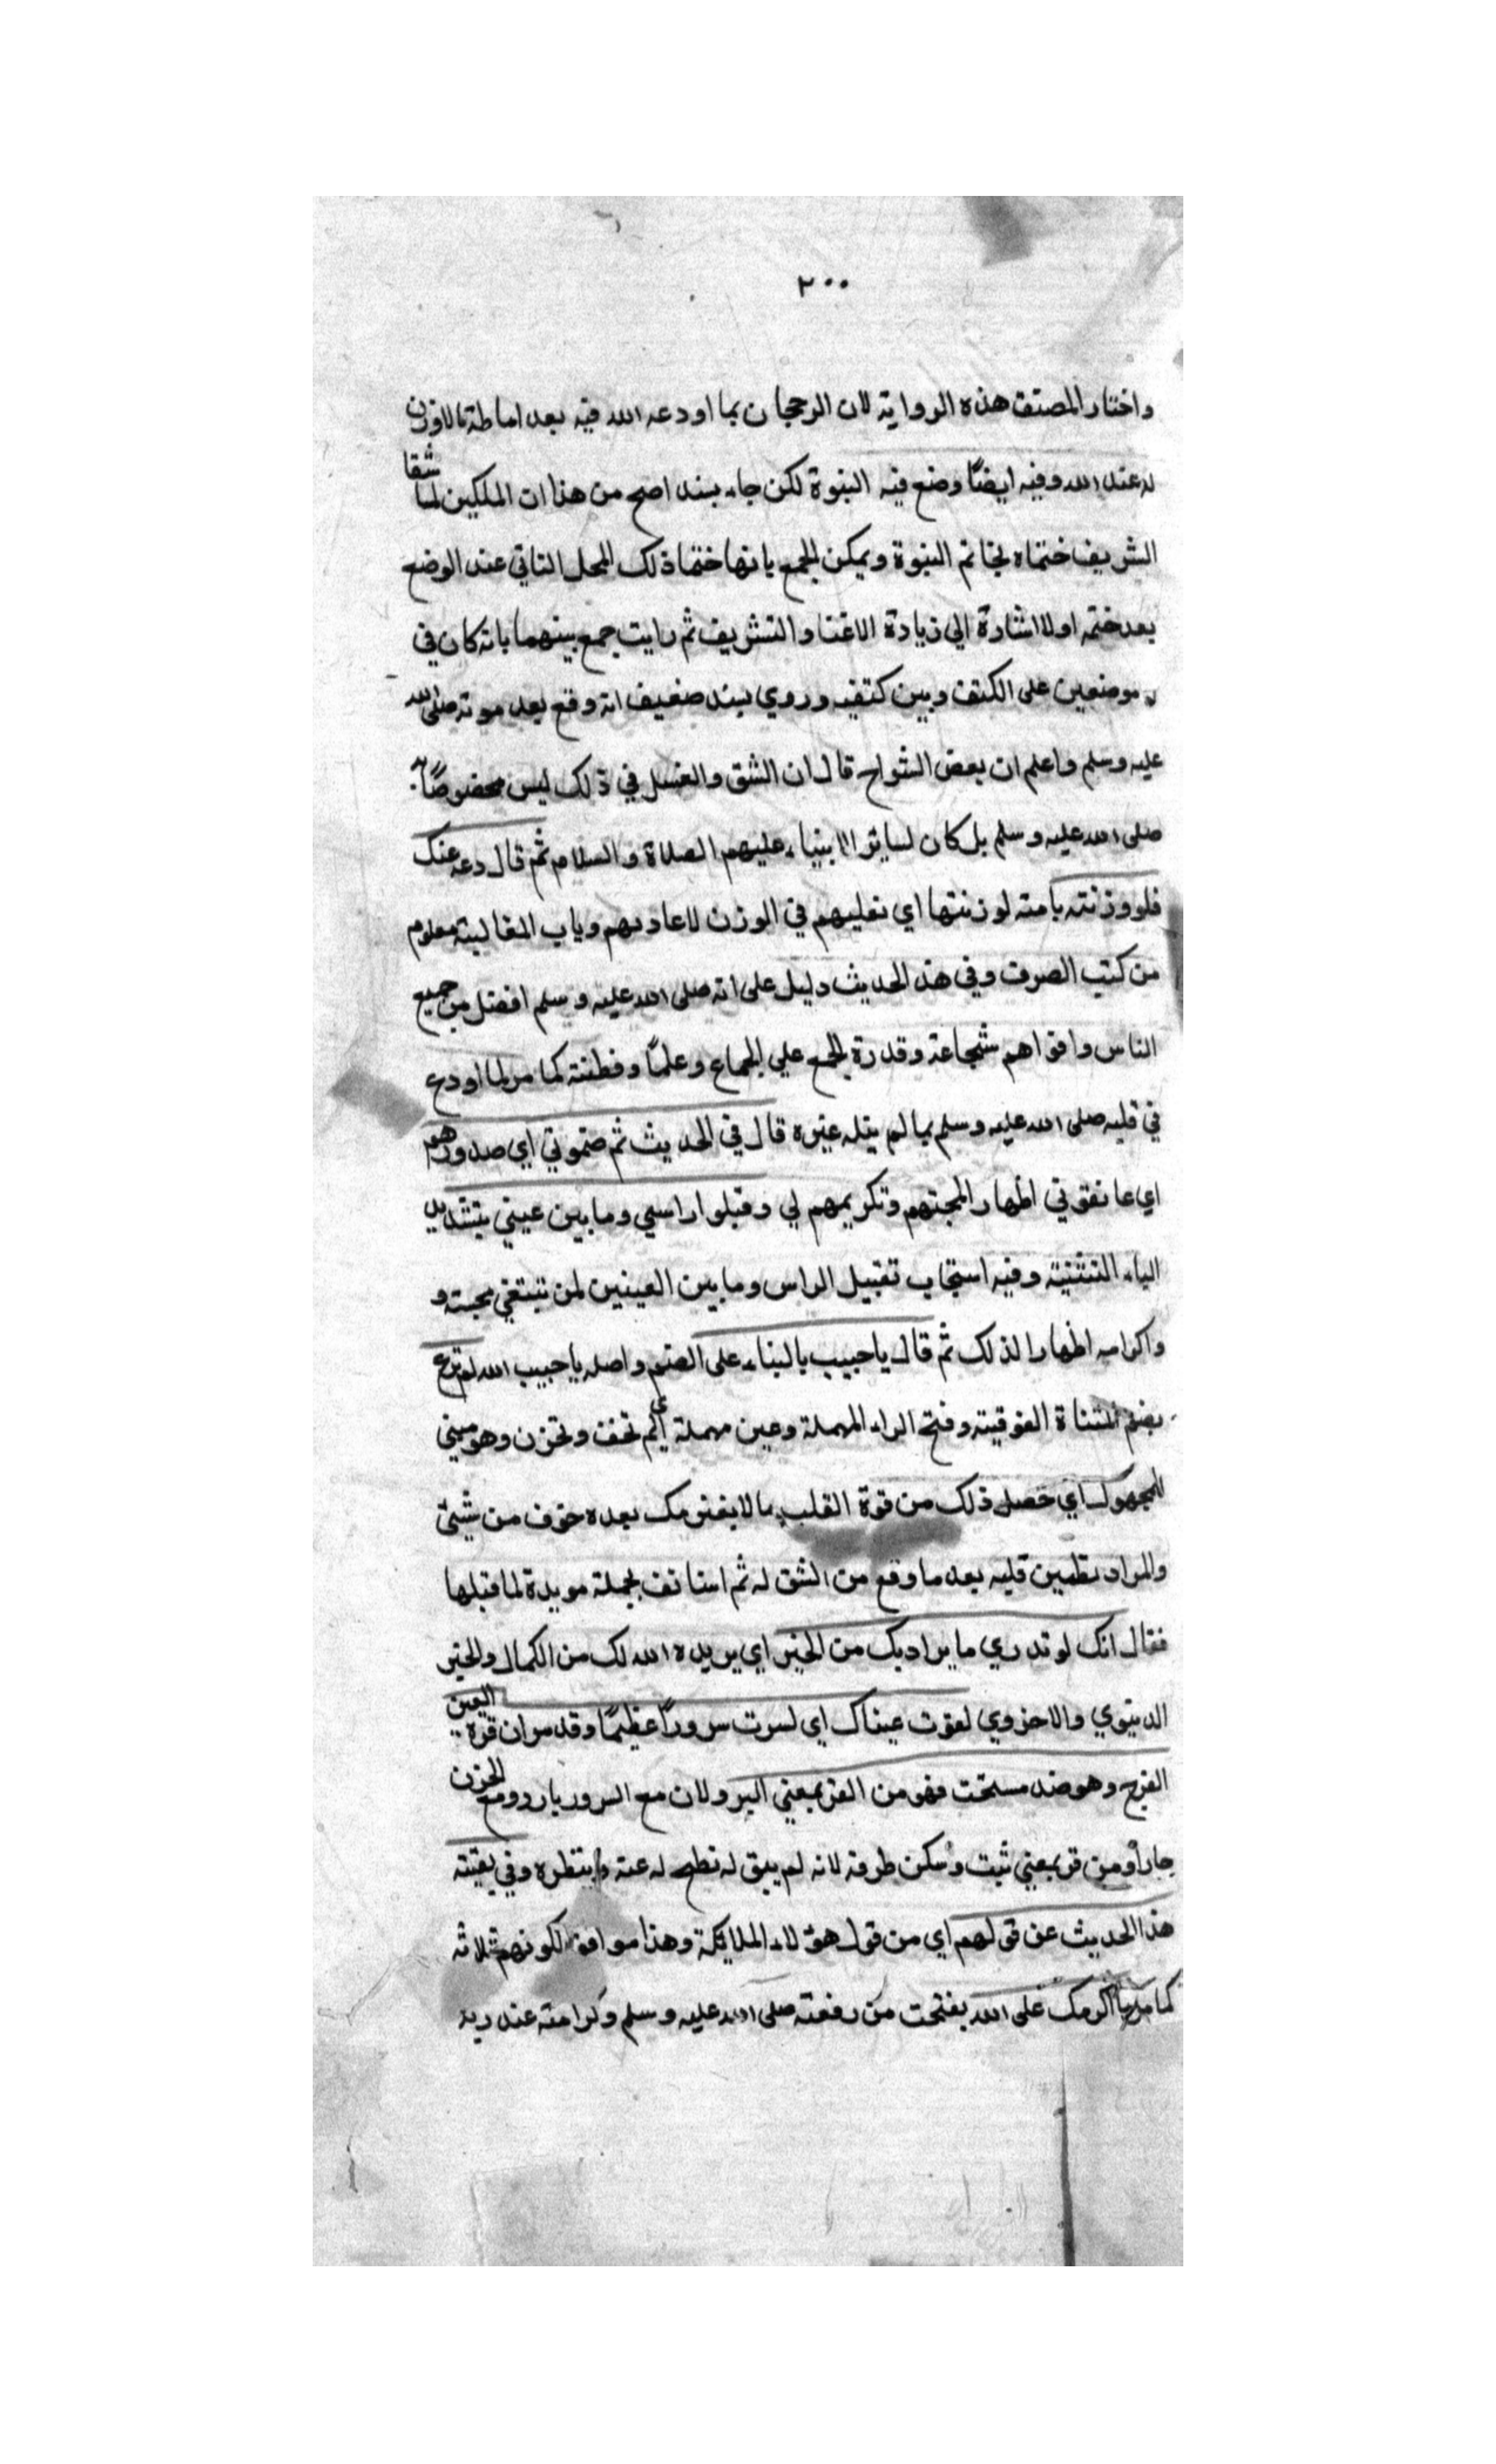 ٢٠٠
واختار المصنف هذه الرواية لان الرجحان بما اودعه الله فيه بعد اماطة مالا وزن
له عند الله وفيه ايضًا وضع فيه النبوة لكن جاء بسند اصح من هذا ان الملكين لما شقا
الشريف ختماه بخاتم النبوة ويمكن الجمع بانها ختما ذلك المحل الثاني عند الوضع
بعد ختمه اولا اشارة الي زيادة الاعتنا والتشريف ثم رايت جمع بينهما بانه كان في
موضعين على الكتف وبين كتفيه وروي بسند ضعيف انه وقع بعد موته صلى الله
عليه وسلم واعلم ان بعض الشواح قال ان الشق والغسل في ذلك ليس مخصوصًا به
صلى الله عليه وسلم بل كان لساير الانبياء عليهم الصلاة والسلام ثم قال دعه عنك
فلو وزنته بامته لوزنتها اي نغلبهم في الوزن لا عادتهم وباب المغالبة معلوم
من كتب الصرف وفي هذ الحديث دليل على انه صلى الله عليه وسلم افضل من جميع
الناس واقواهم شجاعة وقدرة الجمع علي الجماع وعلمًا وفطنة كما مر لما اودع
في قلبه صلى الله عليه وسلم بما لم ينله غيره قال في الحديث ثم ضموني اي صدورهم
اي عانقوني اظهار المحبتهم وتكريمهم لي وقبلوا راسي وما بين عيني بتشديد
الياء التثنية وفيه استحباب تقبيل الراس وما بين العينين لمن تبتغي محبته و
واكرامه اظهارا لذلك ثم قال يا حبيب بالبناء على الضم واصله يا حبيب الله لم ترع
بضم المثناة الفوقية وفتح الراء المهملة وعين مهملة اي لم تخف وتحزن وهو مبني
للمجهول اي حصل ذلك من قوة القلب ما لا يعتريك بعده خوف من شيئ
والمراد تطمين قلبه بعد ما وقع من الشق له ثم استانف بجملة مويدة لما قبلها
فقال انك لو تدري ما يراد بك من الخير اي يريده الله لك من الكمال والخير
الدنيوي والاخروي لقرت عيناك اي لسرت سرورًا عظيمًا وقد مر ان قرة العين
الفرح وهو ضد سخنت فهو من القر بمعني البر ولان مع السرور بارد ومع الحزن
حار أو من قر بمعني ثبت وسكن طرفه لانه لم يبق له تطمح له عنه وينتظره وفي بقية
هذا الحديث عن قولهم اي من قول هؤلاء الملايكة وهذا موافق لكونهم ثلاثة
كما مر ما اكرمك على الله بفتحت من رفعته صلى الله عليه وسلم وكرامته عند ربه